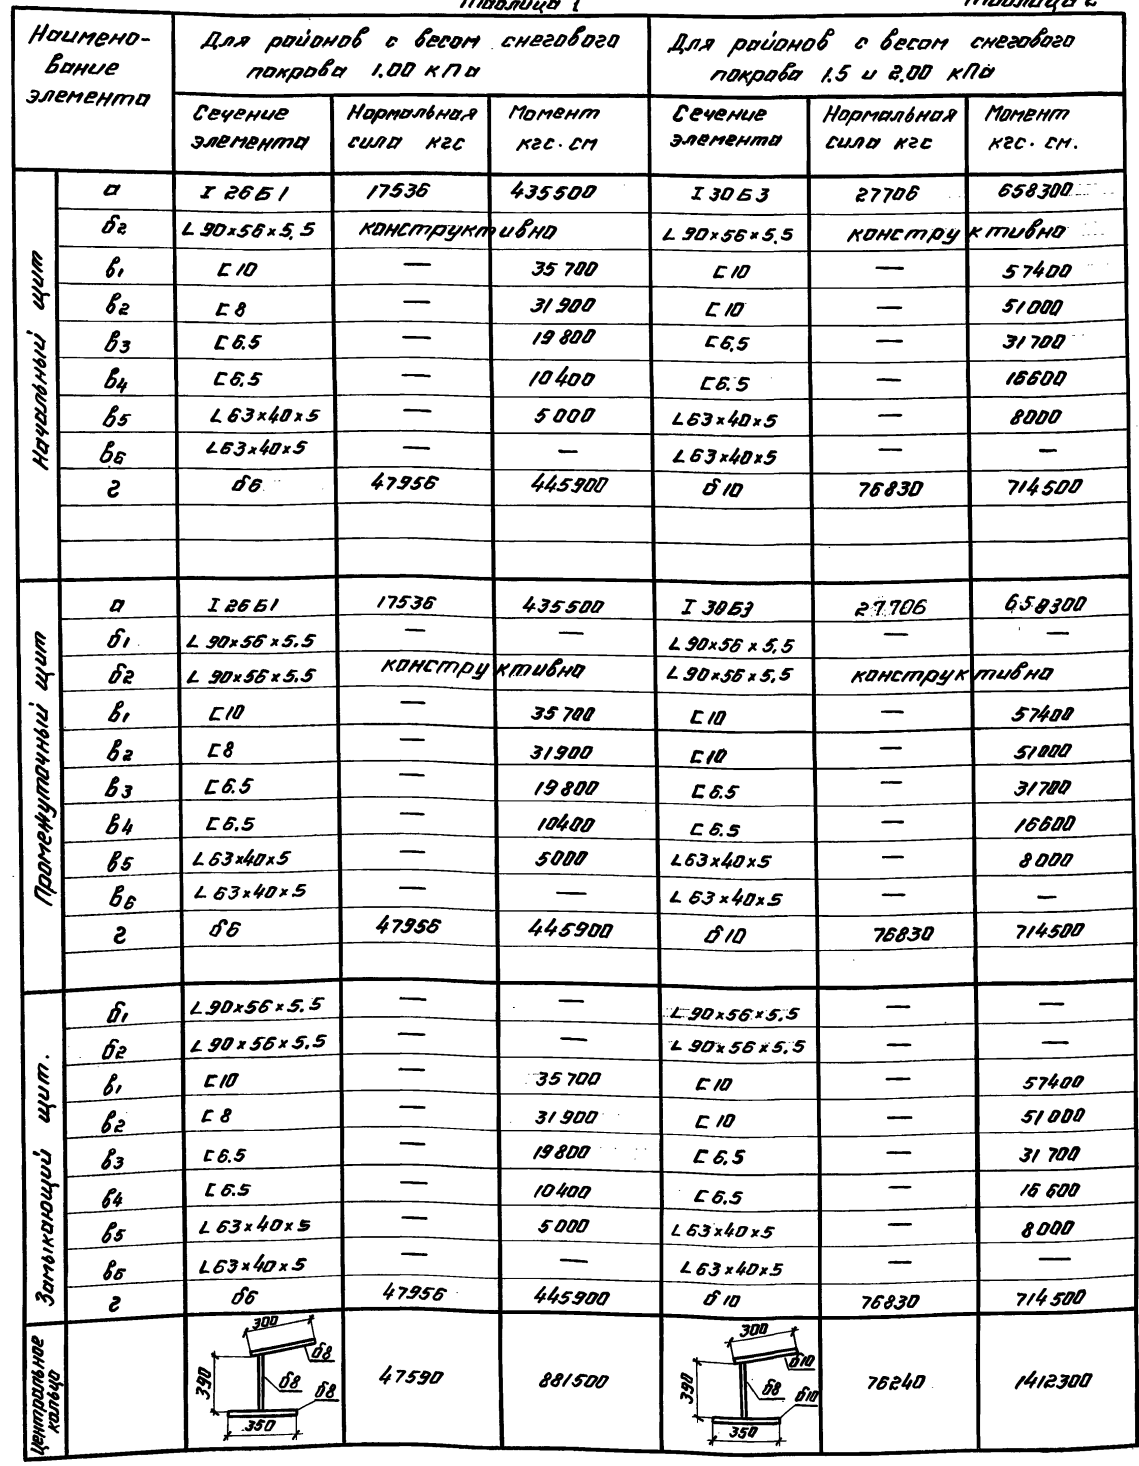 Таблица 1 Таблица 2
Наимено-
вание
элемента
Для районов с весом снегового
покрова 1.00 кПа
Для районов с весом снегового
покрова 1.5 и 2.00 кПа
Сечение элемента | Нормальная сила кгс | Момент кгс·см | Сечение элемента | Нормальная сила кгс | Момент кгс·см.
Начальный щит
а | I 26Б1 | 17536 | 435500 | I 30Б3 | 27706 | 658300
б2 | L 90×56×5,5 | конструктивно | L 90×56×5,5 | конструктивно
в1 | [ 10 | — | 35700 | [ 10 | — | 57400
в2 | [ 8 | — | 31900 | [ 10 | — | 51000
в3 | [ 6.5 | — | 19800 | [ 6,5 | — | 31700
в4 | [ 6.5 | — | 10400 | [ 6.5 | — | 16600
в5 | L 63×40×5 | — | 5000 | L 63×40×5 | — | 8000
в6 | L 63×40×5 | — | — | L 63×40×5 | — | —
г | δ6 | 47956 | 445900 | δ10 | 76830 | 714500
Промежуточный щит
а | I 26Б1 | 17536 | 435500 | I 30Б3 | 27706 | 658300
б1 | L 90×56×5.5 | — | — | L 90×56×5,5 | — | —
б2 | L 90×56×5.5 | конструктивно | L 90×56×5,5 | конструктивно
в1 | [ 10 | — | 35700 | [ 10 | — | 57400
в2 | [ 8 | — | 31900 | [ 10 | — | 51000
в3 | [ 6.5 | — | 19800 | [ 6.5 | — | 31700
в4 | [ 6.5 | — | 10400 | [ 6.5 | — | 16600
в5 | L 63×40×5 | — | 5000 | L 63×40×5 | — | 8000
в6 | L 63×40×5 | — | — | L 63×40×5 | — | —
г | δ6 | 47956 | 445900 | δ10 | 76830 | 714500
Замыкающий щит.
б1 | L 90×56×5.5 | — | — | L 90×56×5,5 | — | —
б2 | L 90×56×5.5 | — | — | L 90×56×5,5 | — | —
в1 | [ 10 | — | 35700 | [ 10 | — | 57400
в2 | [ 8 | — | 31900 | [ 10 | — | 51000
в3 | [ 6.5 | — | 19800 | [ 6,5 | — | 31700
в4 | [ 6.5 | — | 10400 | [ 6.5 | — | 16600
в5 | L 63×40×5 | — | 5000 | L 63×40×5 | — | 8000
в6 | L 63×40×5 | — | — | L 63×40×5 | — | —
г | δ6 | 47956 | 445900 | δ10 | 76830 | 714500
Центральное
кольцо
300 δ8 390 δ8 δ8 350 | 47590 | 881500 | 300 δ10 390 δ8 δ10 350 | 76240 | 1412300